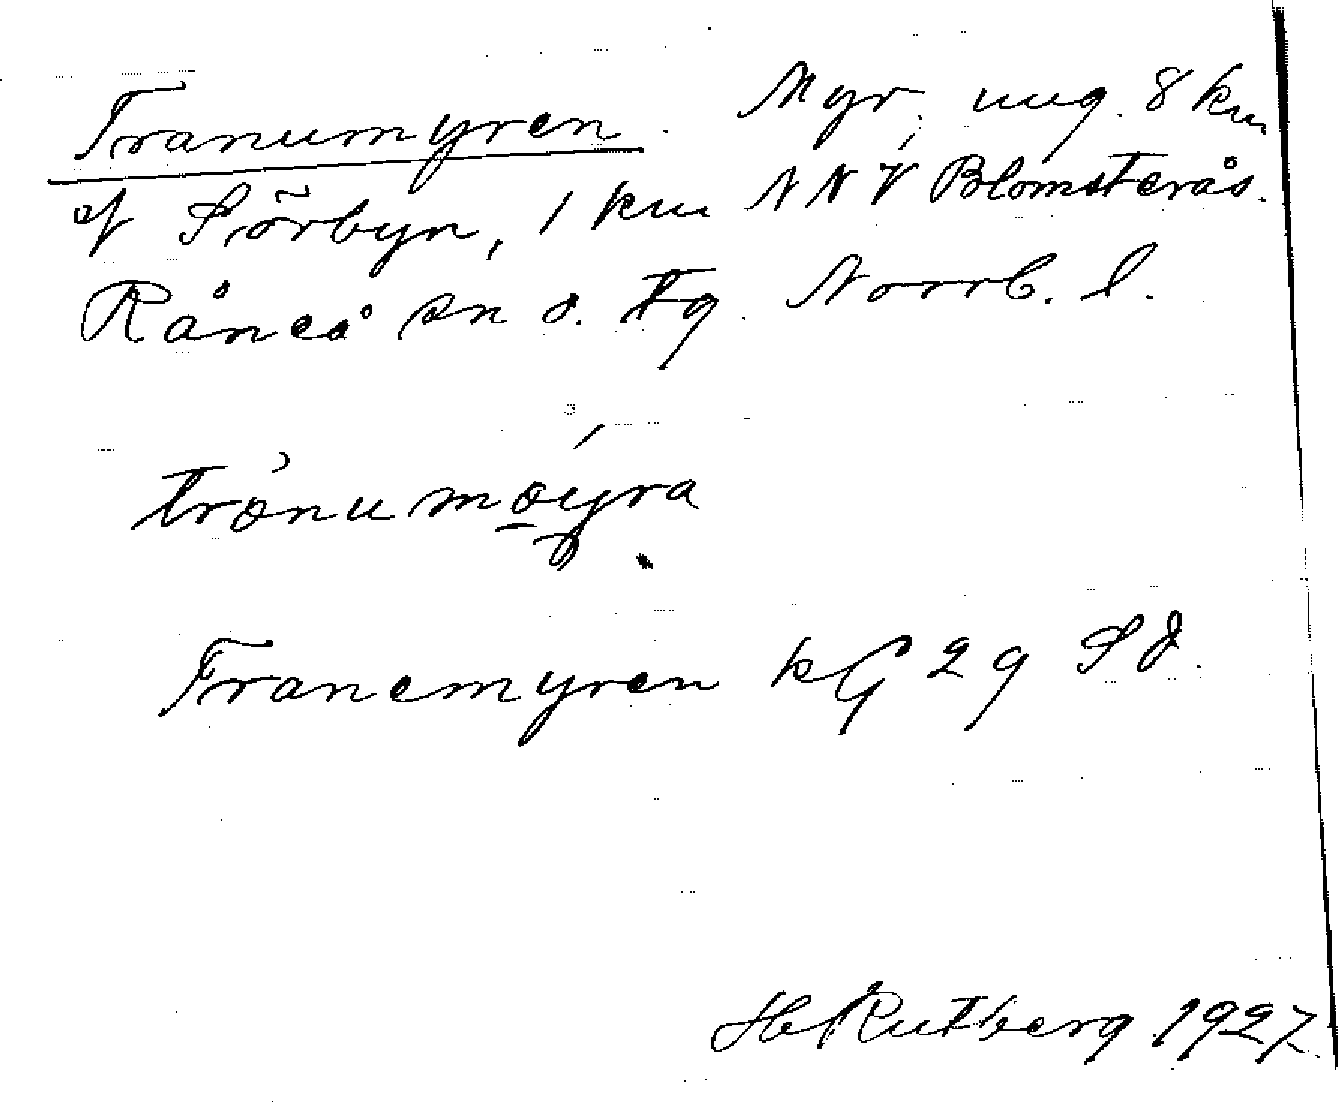 Tranumyren. Myr, ung. 8 km
af Sörbyn, 1 km NNV Blomsterås.
Råneå sn o. tg. Norrb. l.
trånumöyra
Tranemyren kG 29 Sd.
H. Rutberg 1927.